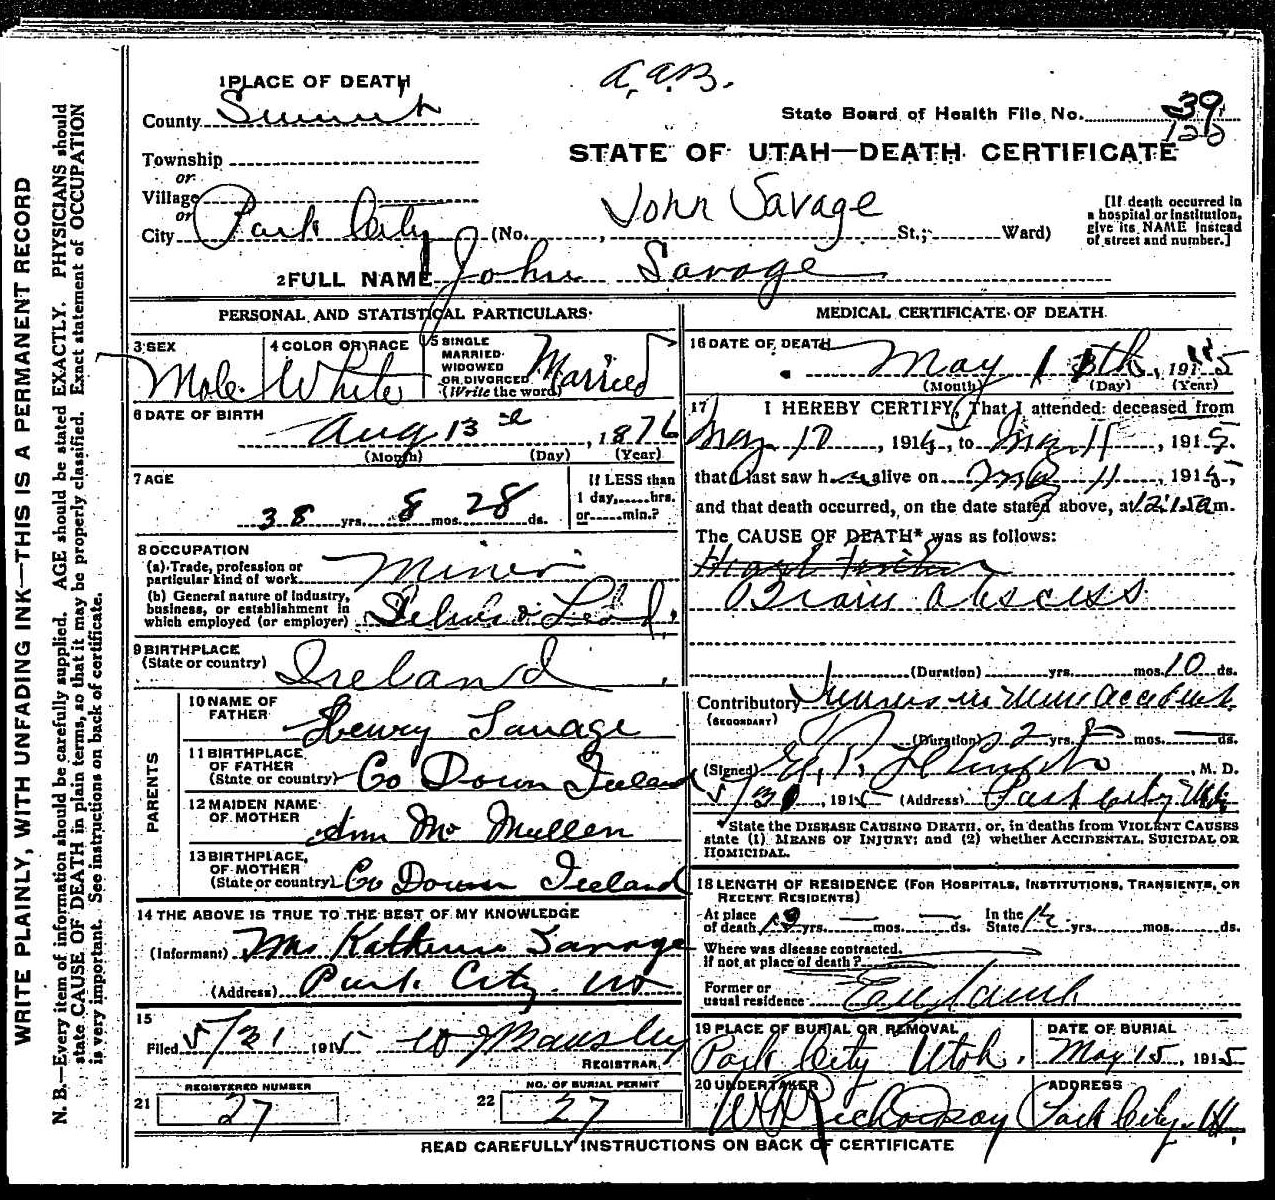 a.a.B.
1 PLACE OF DEATH
County Summit
State Board of Health File No. 39
Township
or
STATE OF UTAH—DEATH CERTIFICATE
Village
or
John Savage
City Park City (No. , St.; Ward)
[If death occurred in a hospital or institution, give its NAME instead of street and number.]
2 FULL NAME John Savage
PERSONAL AND STATISTICAL PARTICULARS
3 SEX
Male
4 COLOR OR RACE
White
5 SINGLE
MARRIED
WIDOWED
OR DIVORCED
(Write the word)
Married
6 DATE OF BIRTH
Aug 13th, 1876
(Month) (Day) (Year)
7 AGE
38 yrs. 8 mos. 28 ds.
If LESS than
1 day, hrs.
or min.?
8 OCCUPATION
(a) Trade, profession or
particular kind of work Miner
(b) General nature of industry,
business, or establishment in
which employed (or employer) Silver & Lead.
9 BIRTHPLACE
(State or country) Ireland
PARENTS
10 NAME OF
FATHER Henry Savage
11 BIRTHPLACE
OF FATHER
(State or country) Co Down Ireland
12 MAIDEN NAME
OF MOTHER Ann Mc Mullen
13 BIRTHPLACE
OF MOTHER
(State or country) Co Down Ireland
14 THE ABOVE IS TRUE TO THE BEST OF MY KNOWLEDGE
(Informant) Mrs Katherine Savage
(Address) Park City Ut
15
Filed 5/31 1915
REGISTRAR
REGISTERED NUMBER
21 27
NO. OF BURIAL PERMIT
22 27
MEDICAL CERTIFICATE OF DEATH
16 DATE OF DEATH
May 1 th, 1915
(Month) (Day) (Year)
17 I HEREBY CERTIFY, That I attended deceased from
May 10, 1915, to May 11, 1915.
that I last saw h alive on May 11, 1915,
and that death occurred, on the date stated above, at 12:15 a m.
The CAUSE OF DEATH* was as follows:
Brain abscess
(Duration) yrs. mos. 10 ds.
Contributory Injuries in Mine accident
(SECONDARY)
(Duration) 2 yrs. mos. ds.
(Signed) M. D.
5/3 , 1915 (Address) Park City Ut
*State the DISEASE CAUSING DEATH, or, in deaths from VIOLENT CAUSES
state (1) MEANS OF INJURY; and (2) whether ACCIDENTAL, SUICIDAL OR
HOMICIDAL.
18 LENGTH OF RESIDENCE (FOR HOSPITALS, INSTITUTIONS, TRANSIENTS, OR
RECENT RESIDENTS)
At place
of death yrs. mos. ds.
In the
State yrs. mos. ds.
Where was disease contracted,
if not at place of death?
Former or
usual residence England
19 PLACE OF BURIAL OR REMOVAL
Park City Utah.
DATE OF BURIAL
May 15, 1915
20 UNDERTAKER
W Richardson
ADDRESS
Park City, Ut.
READ CAREFULLY INSTRUCTIONS ON BACK OF CERTIFICATE
WRITE PLAINLY, WITH UNFADING INK—THIS IS A PERMANENT RECORD
N. B.—Every item of information should be carefully supplied. AGE should be stated EXACTLY. PHYSICIANS should
state CAUSE OF DEATH in plain terms, so that it may be properly classified. Exact statement of OCCUPATION
is very important. See instructions on back of certificate.